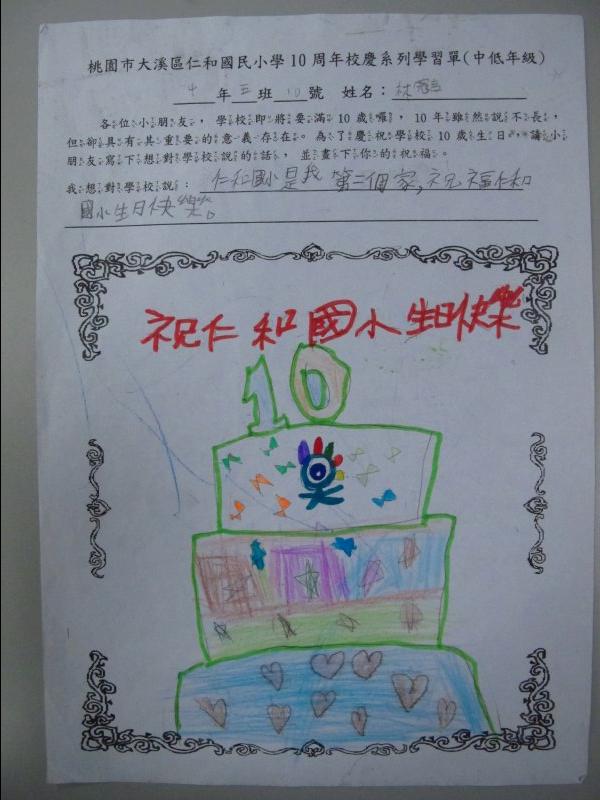 桃園市大溪區仁和國民小學10周年校慶系列學習單(中低年級)
年三班10號 姓名:林
各位小朋友,學校即將要滿10歲囉,10年雖然說不長,
但卻具有其重要的意義存在。為了慶祝學校10歲生日,請小
朋友寫下想對學校說的話,並畫下你的祝福。
我想對學校說:仁和國小是我第二個家,祝福仁和
國小生日快樂。
祝仁和國小生日快樂
10